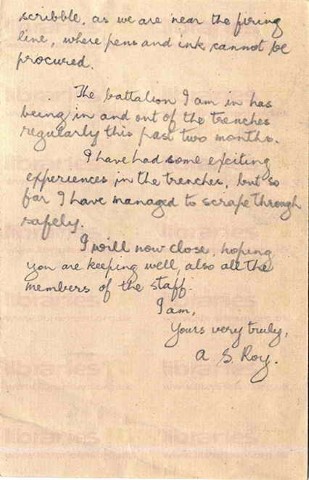 scribble, as we are near the firing
line, where pens and ink cannot be
procured.
The battalion I am in has
being in and out of the trenches
regularly this past two months.
I have had some exciting
experiences in the trenches, but so
far I have managed to scrape through
safely.
I will now close, hoping
you are keeping well, also all the
members of the staff.
I am,
Yours very truly,
A. S. Roy.
libraries